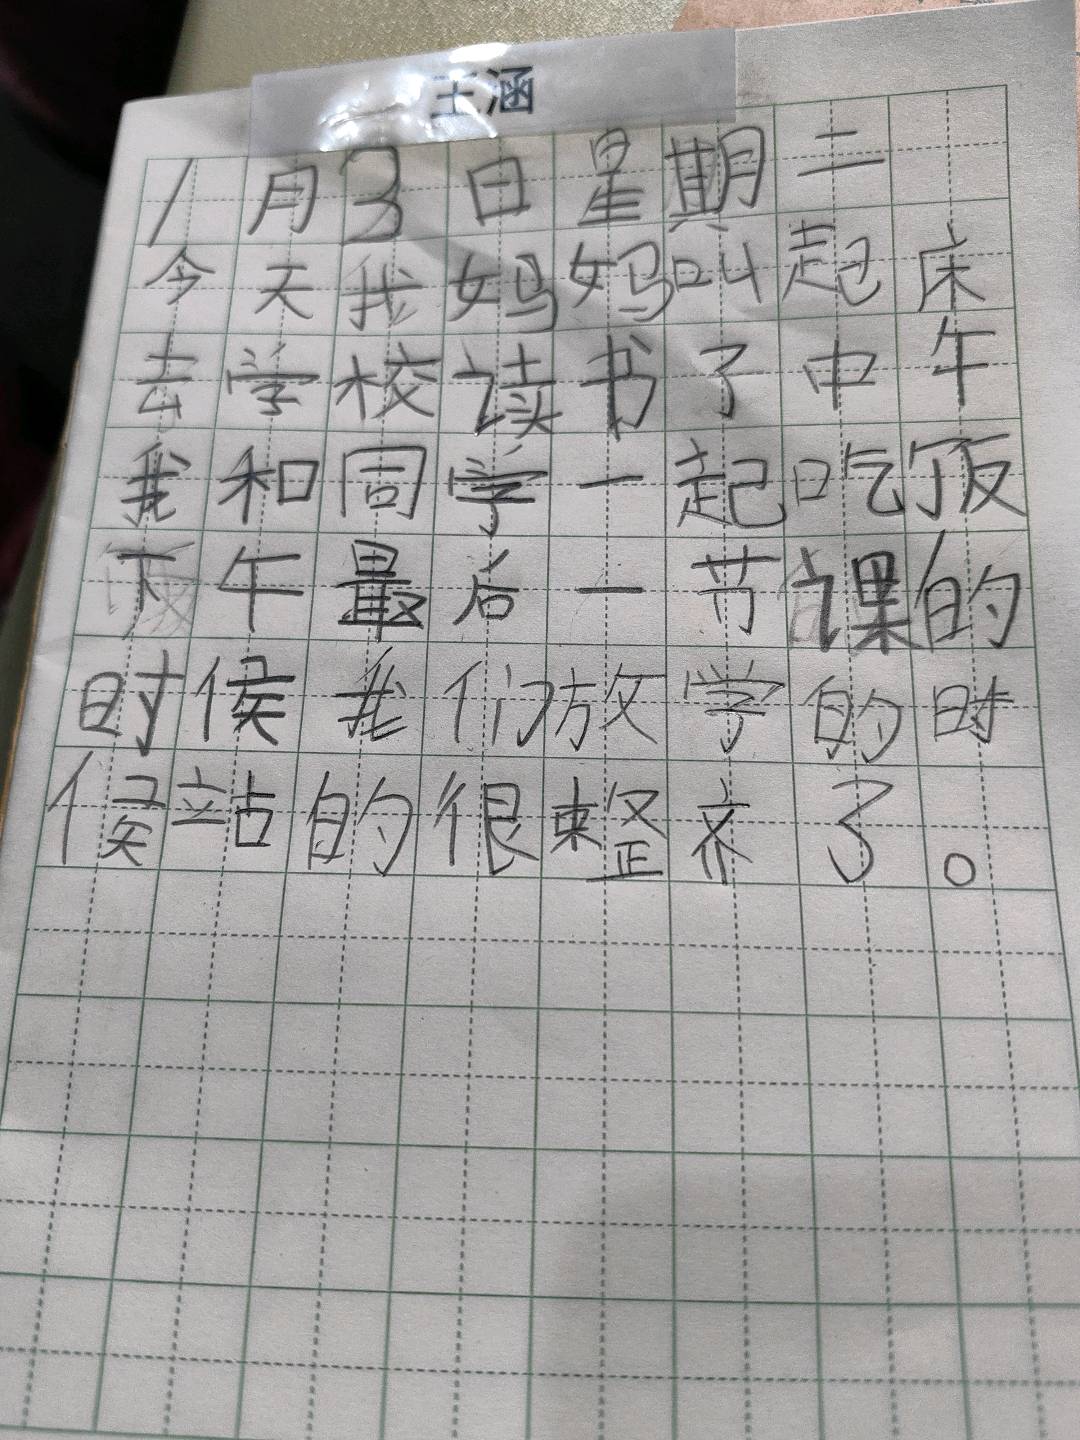 王涵
1月3日星期二
今天我妈妈叫起床
去学校读书了中午
我和同学一起吃饭
下午最后一节课的
时侯我们放学的时
侯站的很整齐了。